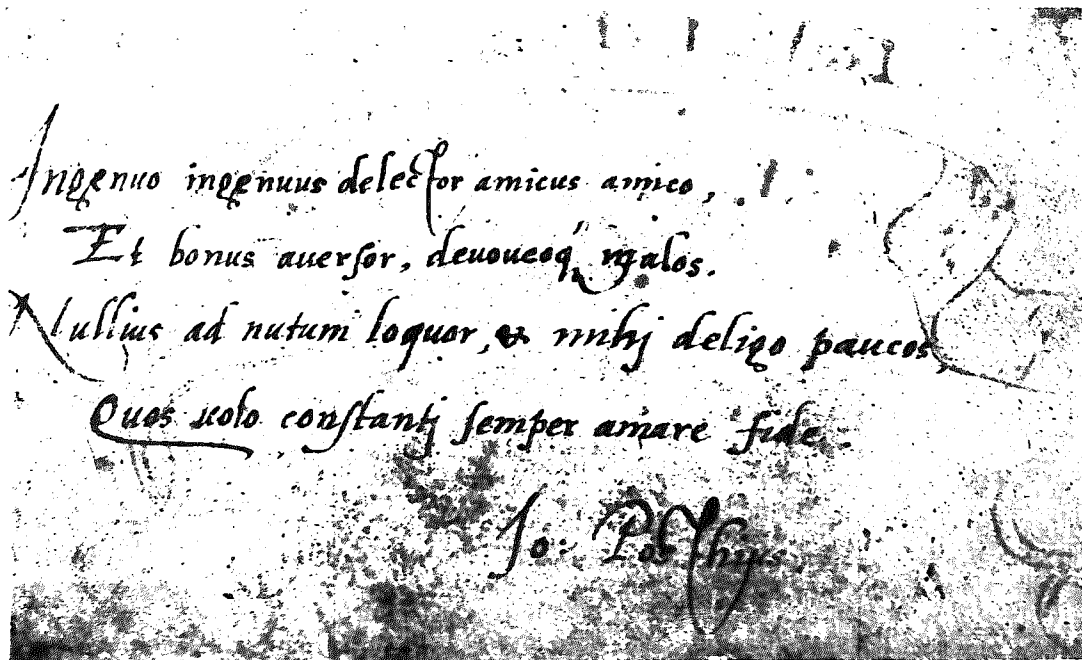 Ingenuo ingenuus delector amicus amico,
Et bonus auersor, deuoueoq́ malos.
Nullius ad nutum loquor, & mihj deligo paucos,
Quos uolo constantj semper amare fide.
Io: Posthius.